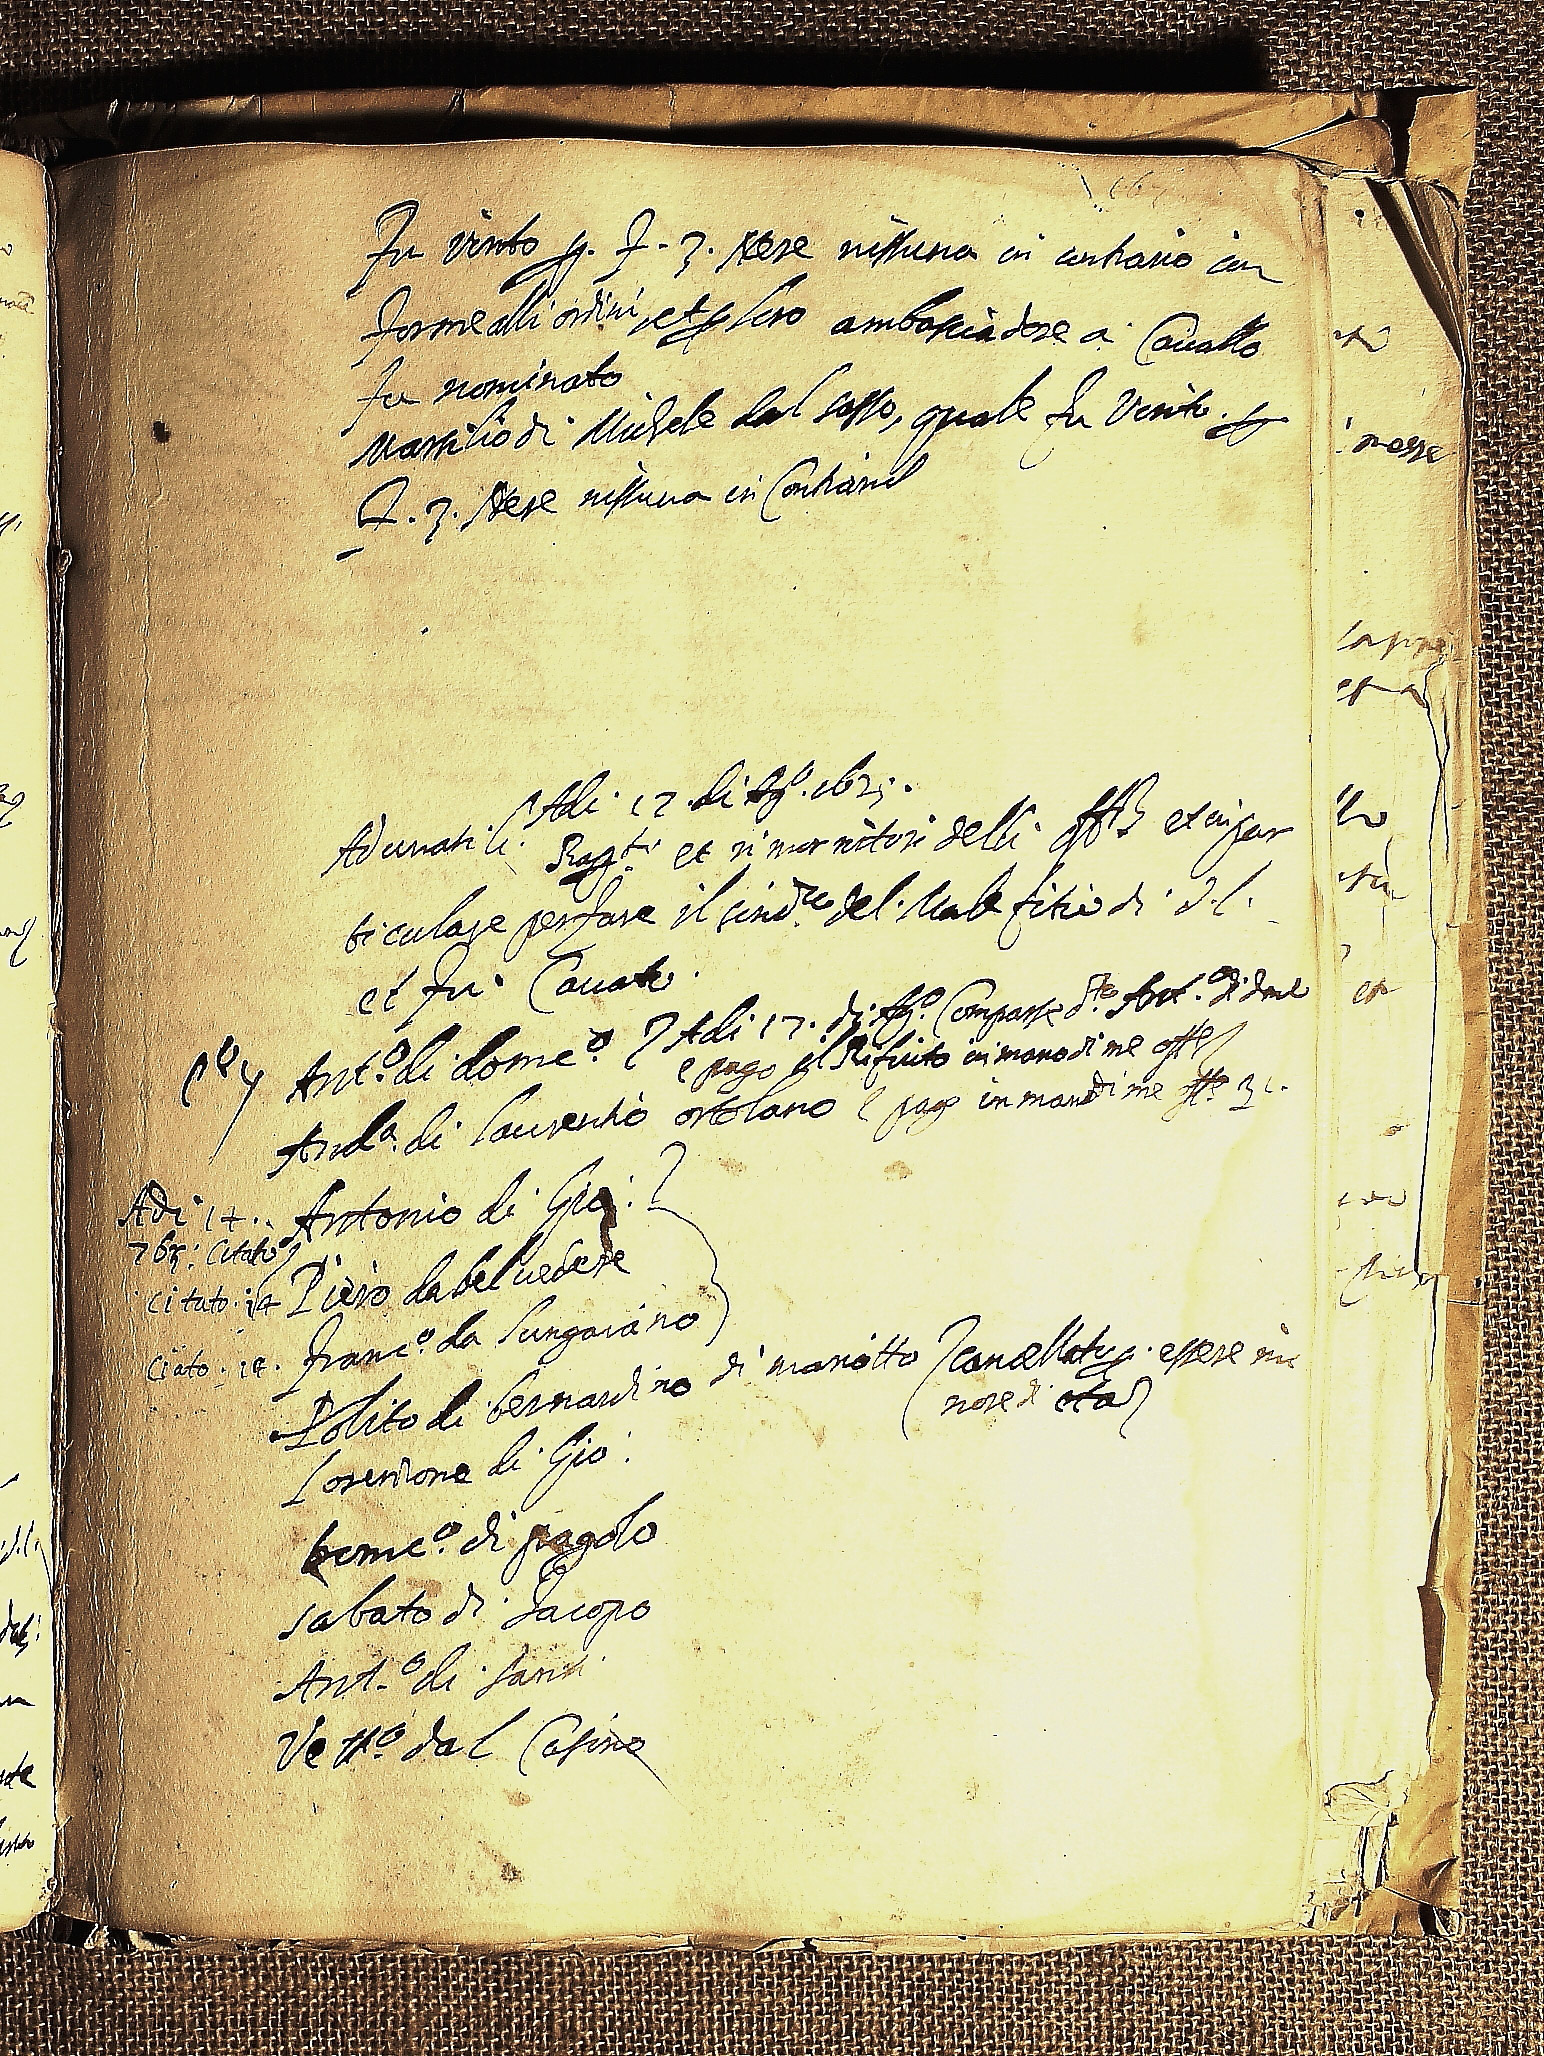 fu vinto p. f. 3. Nere nissuna in contrario con
forme alli ordini, et p loro ambasciadore a Cavallo
fu nominato
Marsilio di Michele dal sasso, quale fu Vinto p
f. 3. Nere nissuna in Contrario
Adi 17 di Agº. 163
Adunati li Rapti et rimornitori delli et in par
ticulare per fare il sind.co del Malefitio di S. L.
et fu Cavato.
Ant.º di domc.º Adi 17. di Agº Comparse d.to Ant.º di dome
e pago il Rifiuto in mano di me
And.a di laurentio ortolano e pago in mano di me
Adi 14. Antonio di Gio:
7br: Citato
Citato. 14 Piero da belvedere
Citato. 14. Franc.º da
Polito di bernardino di mariotto Cancellato p. essere mi
nore di eta
Lorenzone di Gio:
Domc.º di pagolo
Sabato di Jacopo
Ant.º di Santi
Vett.º dal Casino
messe